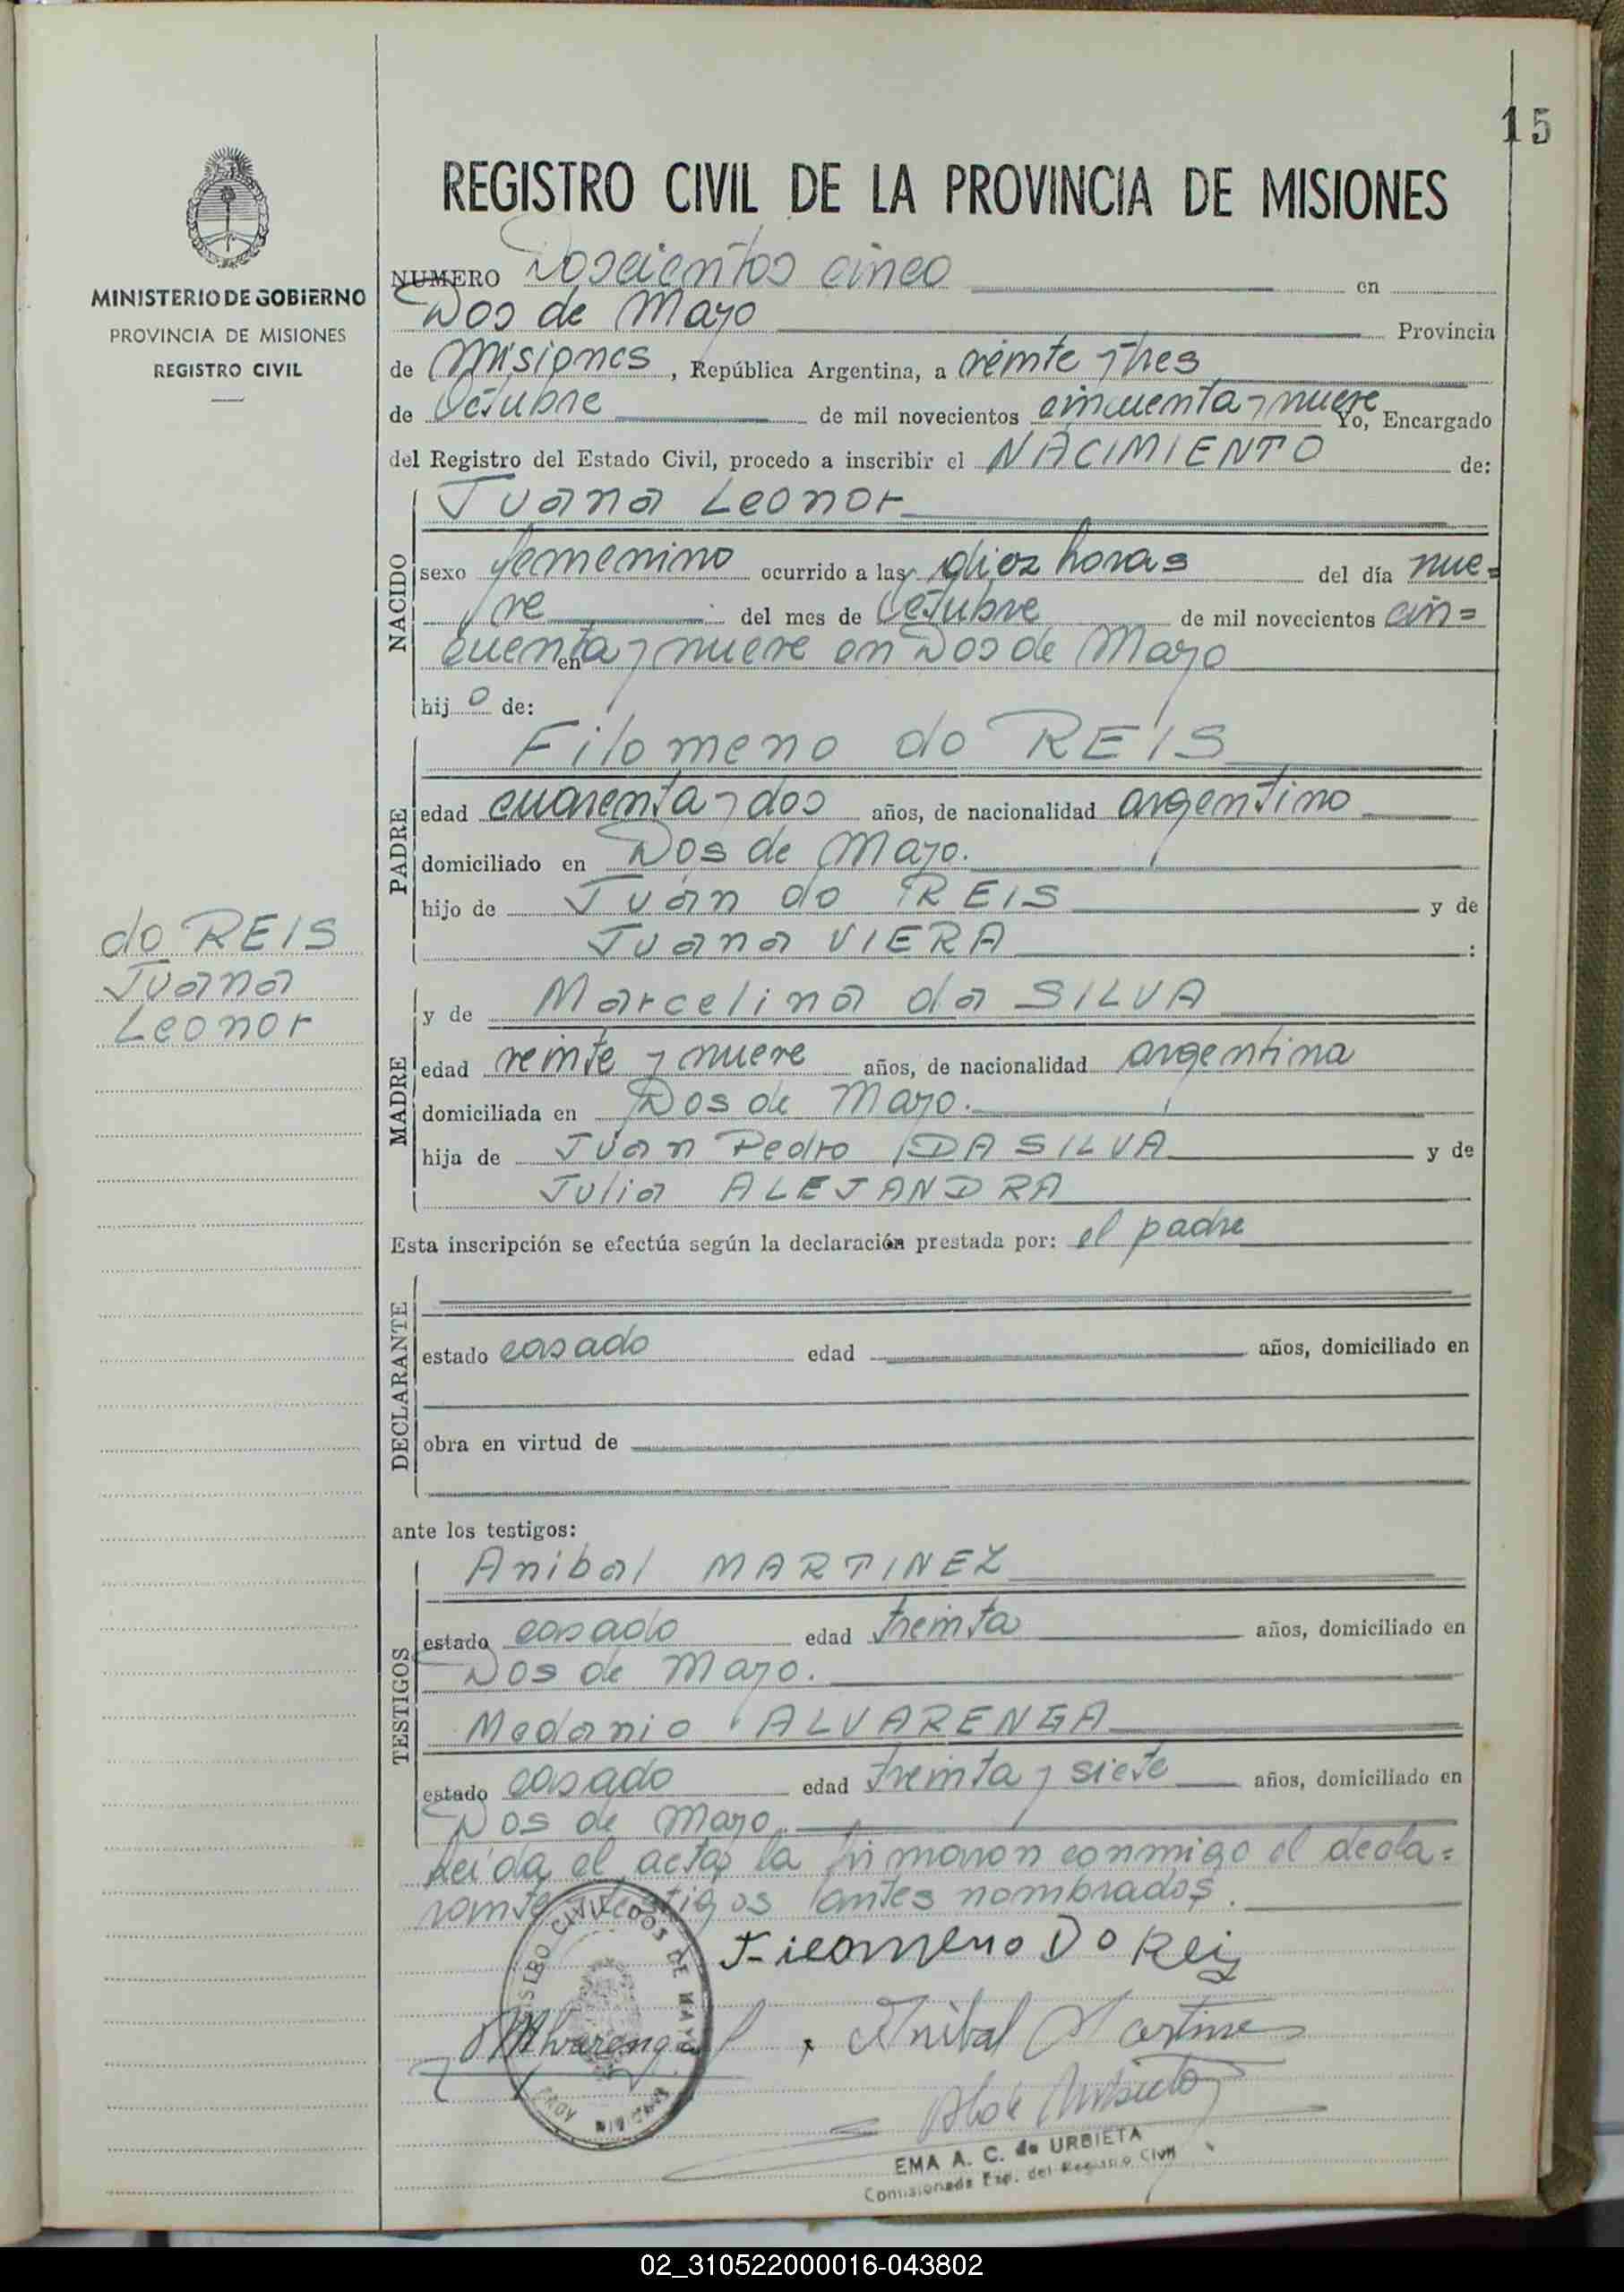 15
MINISTERIO DE GOBIERNO
PROVINCIA DE MISIONES
REGISTRO CIVIL
do REIS
Juana
Leonor
REGISTRO CIVIL DE LA PROVINCIA DE MISIONES
NUMERO Doscientos cinco en
Dos de Mayo Provincia
de Misiones, República Argentina, a veinte y tres
de Octubre de mil novecientos cincuenta y nueve Yo, Encargado
del Registro del Estado Civil, procedo a inscribir el NACIMIENTO de:
NACIDO
Juana Leonor
sexo femenino ocurrido a las diez horas del día nue=
ve del mes de Octubre de mil novecientos cin=
cuenta y nueve en Dos de Mayo
en
hijo de:
PADRE
Filomeno do REIS
edad cuarenta y dos años, de nacionalidad argentino
domiciliado en Dos de Mayo.
hijo de Juan do REIS y de
Juana VIERA :
MADRE
y de Marcelina da SILVA
edad veinte y nueve años, de nacionalidad argentina
domiciliada en Dos de Mayo.
hija de Juan Pedro DA SILVA y de
Julia ALEJANDRA
Esta inscripción se efectúa según la declaración prestada por: el padre
DECLARANTE
estado casado edad años, domiciliado en
obra en virtud de
ante los testigos:
TESTIGOS
Anibal MARTINEZ
estado casado edad treinta años, domiciliado en
Dos de Mayo.
Medanio ALVARENGA
estado casado edad treinta y siete años, domiciliado en
Dos de Mayo.
Leída el acta, la firmaron conmigo el decla=
rante y testigos antes nombrados.
Filomeno Do Reis
REGISTRO CIVIL DOS DE MAYO
MAlvarenga
Anibal Martinez
Urbieta
EMA A. C. de URBIETA
Comisionada Esp. del Registro Civil
02_310522000016-043802